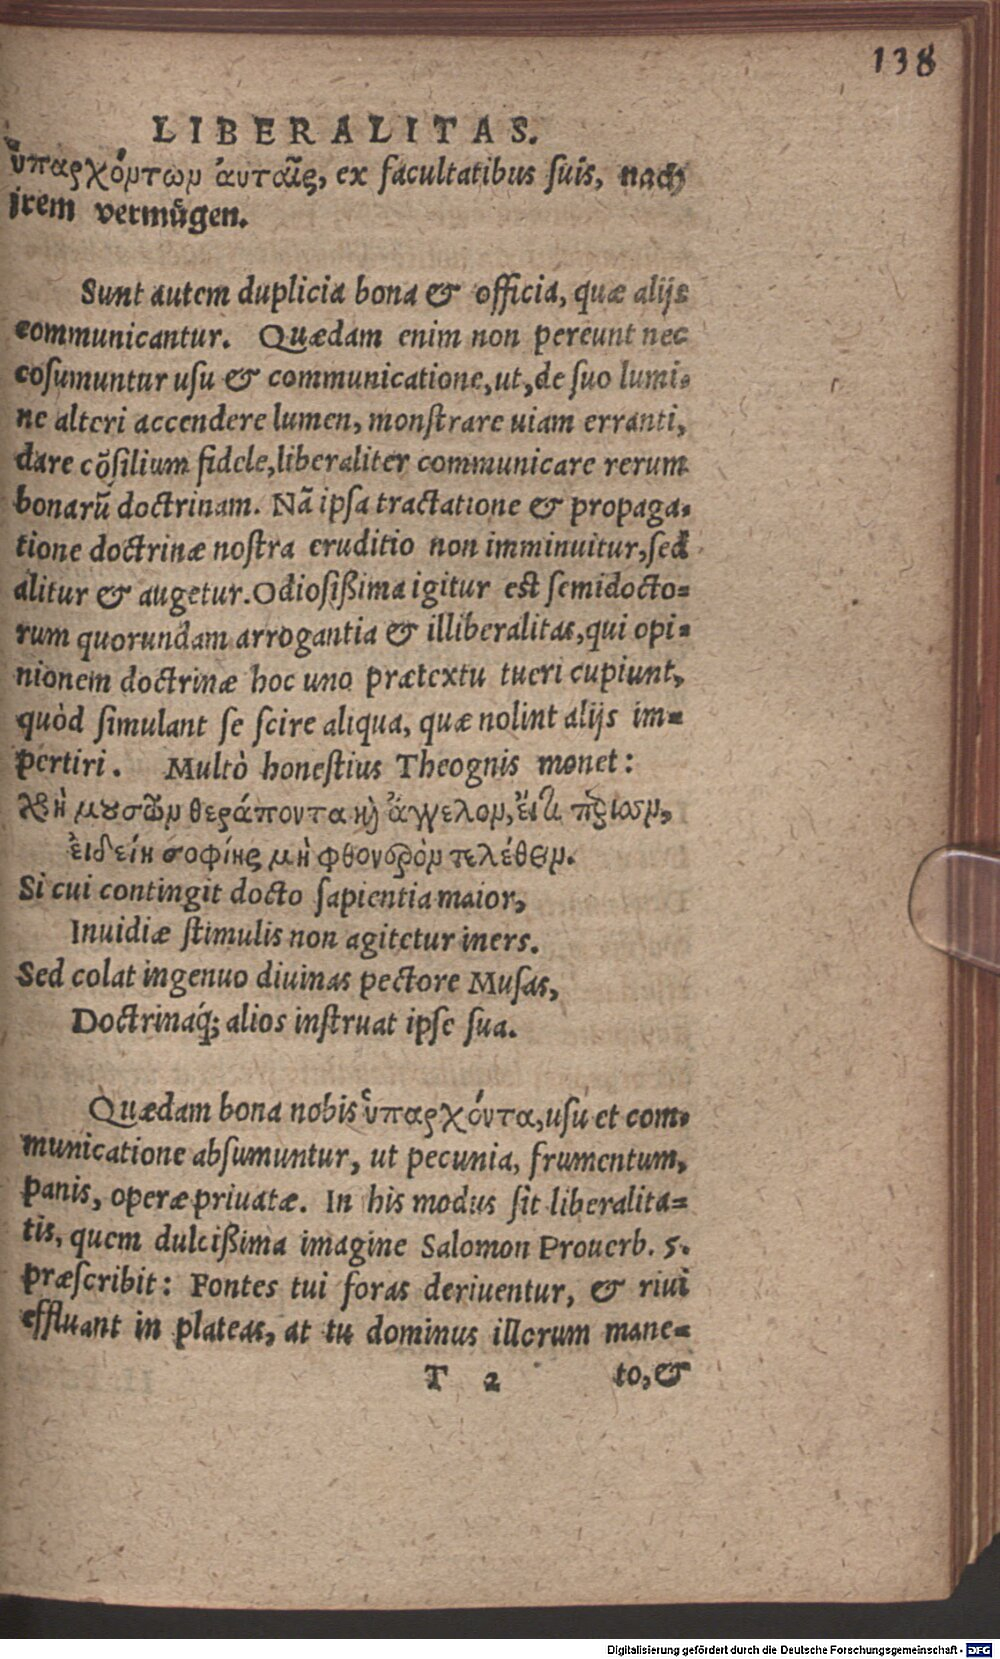 138
LIBERALITAS.
ὑπαρχόντων ἀυταῖς, ex facultatibus suis, nach
jrem vermůgen.
Sunt autem duplicia bona & officia, quæ alijs
communicantur. Quædam enim non pereunt nec
cosumuntur usu & communicatione, ut, de suo lumi-
ne alteri accendere lumen, monstrare uiam erranti,
dare cõsilium fidele, liberaliter communicare rerum
bonarũ doctrinam. Nã ipsa tractatione & propaga-
tione doctrinæ nostra eruditio non imminuitur, sed
alitur & augetur. Odiosißima igitur est semidocto-
rum quorundam arrogantia & illiberalitas, qui opi-
nionem doctrinæ hoc uno prætextu tueri cupiunt,
quòd simulant se scire aliqua, quæ nolint alijs im-
pertiri. Multò honestius Theognis monet:
χρὴ μουσῶν θεράποντα καὶ ἄγγελον, ἔι τι περισσὸν,
ἐιδείη σοφίης μὴ φθονερὸν τελέθειν.
Si cui contingit docto sapientia maior,
Inuidiæ stimulis non agitetur iners.
Sed colat ingenuo diuinas pectore Musas,
Doctrinaq́; alios instruat ipse sua.
Quædam bona nobis ὑπαρχόντα, usu et com-
municatione absumuntur, ut pecunia, frumentum,
panis, operæ priuatæ. In his modus sit liberalita-
tis, quem dulcißima imagine Salomon Prouerb. 5.
præscribit: Fontes tui foras deriuentur, & riui
effluant in plateas, at tu dominus illorum mane-
T 2 to, &
Digitalisierung gefördert durch die Deutsche Forschungsgemeinschaft - DFG